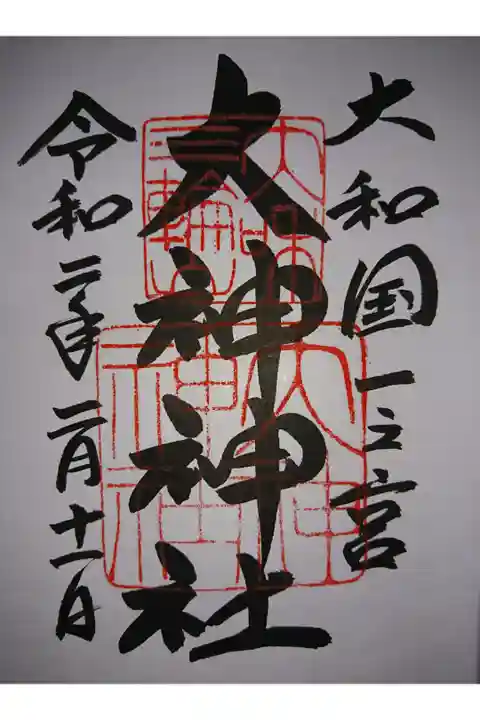 大和国一之宮
大神神社
令和二年二月十一日
大神神社